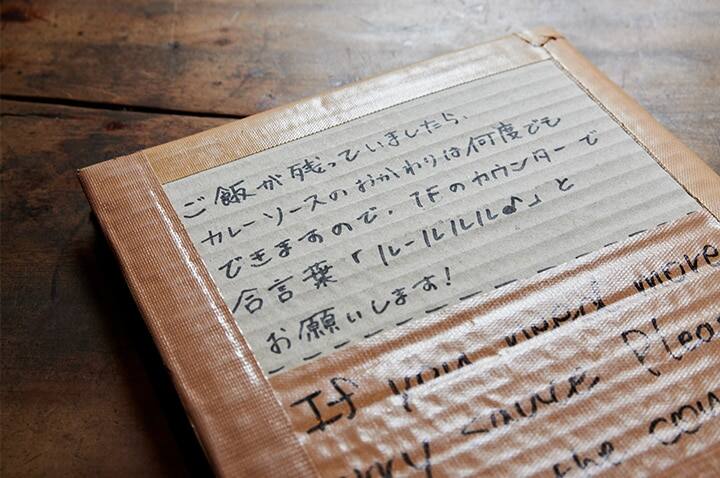 ご飯が残っていましたら、
カレーソースのおかわりは何度でも
できますので、1Fのカウンターで
合言葉「ルールルルル♪」と
お願いします!
If you need more
curry sauce Pleas
the cou